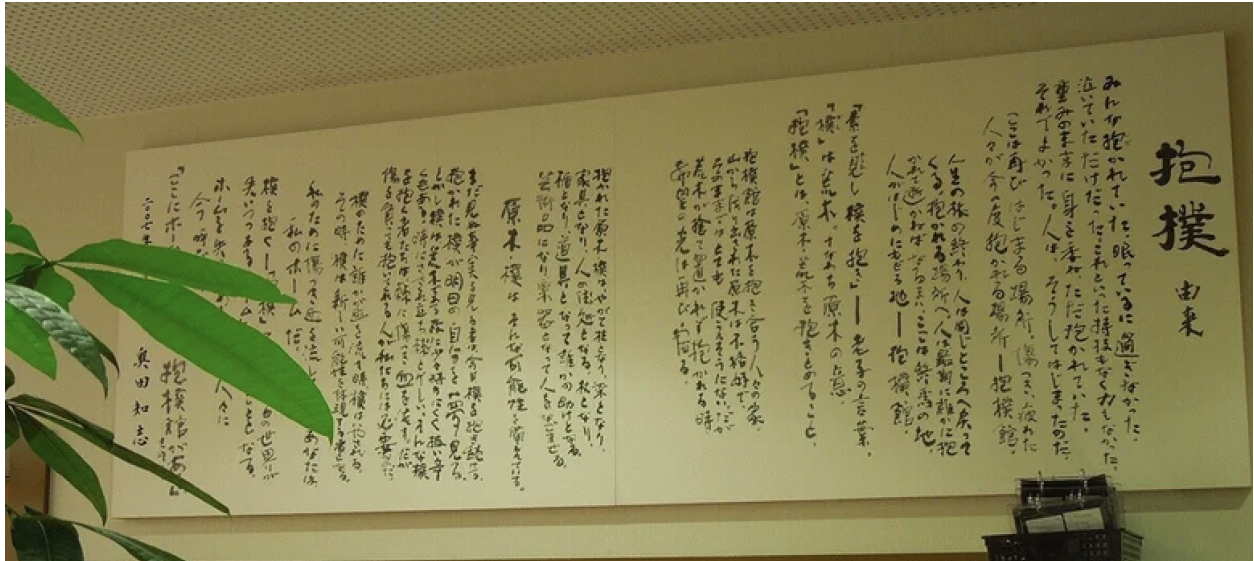 抱樸 由来
みんな抱かれていた。眠っているに過ぎなかった。
泣いていただけだった。これといった特技もなく力もなかった。
重みのままに身を委ね、ただ抱かれていた。
それでよかった。人は、そうしてはじまったのだ。
ここは再びはじまる場所。傷つき、疲れた
人々が今一度抱かれる場所―抱樸館。
人生の旅の終わり。人は同じところへ戻って
くる。抱かれる場所へ。人は最期に誰かに抱
かれて逝かねばなるまい。ここは終焉の地。
人がはじめにもどる地――抱樸館。
「素を見し樸を抱き」――老子の言葉。
「樸」は荒木。すなわち原木の意。
「抱樸」とは、原木・荒木を抱きとめること。
抱樸館は原木を抱き合う人々の家。
山から伐り出された原木は不格好で、
そのままではとても使えそうにない。だが
荒木が捨て置かれず抱かれる時、
希望の光は再び宿る。
抱かれた原木・樸は、やがて柱となり、梁となり、
家具となり、人の住処となる。杖となり、
楯となり、道具となって誰かの助けとなる。
芸術品になり、楽器となって人を和ませる。
原木・樸はそんな可能性を備えている。
まだ見ぬ事実を見る者は、今日、樸を抱き続ける。
抱かれた樸が明日の自分を夢見る。
しかし樸は、荒木である故に少々持ちにくく扱い辛
くもある。時にはささくれ立ち、棘とげしい。そんな樸
を抱く者たちは、棘に傷つき血を流す。だが
傷を負っても抱いてくれる人が私たちには必要なのだ。
樸のために誰かが血を流す時、樸はいやされる。
その時、樸は新しい可能性を体現する者となる。
私のために傷つき血を流してくれるあなたは、
私のホームだ。
樸を抱く――「抱樸」
ホームを
今一時
「ここにホームがある 抱樸館がある」
奥田知志